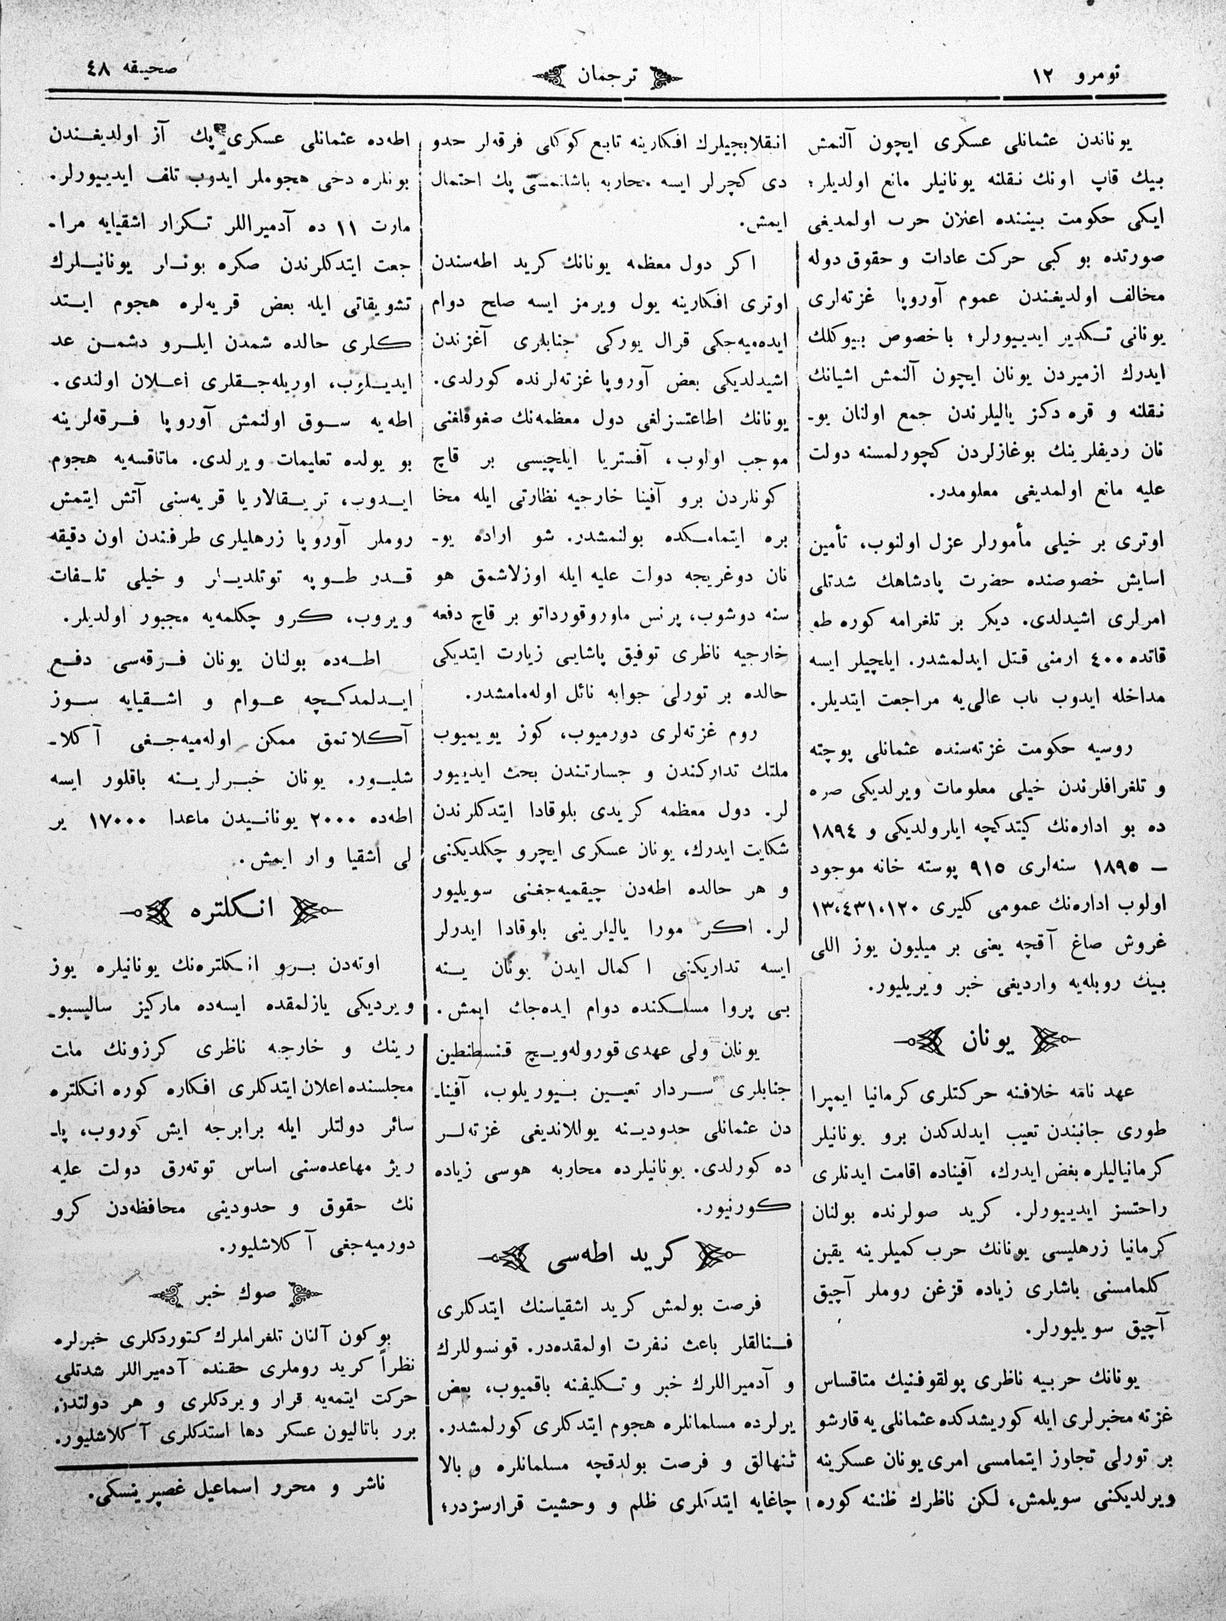 نومرو ١٢
ترجمان
صحيفه ٤٨
يوناندن عثمانلى عسكرى ايچون آلنمش
بيك قاپ اونك نقلنه يونانيلر مانع اولديلر؛
ايكى حكومت بيننده اعلان حرب اولمديغى
صورتده بو كبى حركت عادات و حقوق دوله
مخالف اولديغندن عموم آوروپا غزته‌لرى
يونانى تكدير ايدييورلر؛ باخصوص بيوكلك
ايدرك ازميردن يونان ايچون آلنمش اشيانك
نقلنه و قره دكز ياليلرندن جمع اولنان يو-
نان رديفلرينك بوغازلردن كچورلمسنه دولت
عليه مانع اولمديغى معلومدر.
اوترى بر خيلى مأمورلر عزل اولنوب، تأمين
اسايش خصوصنده حضرت پادشاهك شدتلى
امرلرى اشيدلدى. ديكر بر تلغرامه كوره طو
قاتده ٤٠٠ ارمنى قتل ايدلمشدر. ايلچيلر ايسه
مداخله ايدوب باب عالى‌يه مراجعت ايتديلر.
روسيه حكومت غزته‌سنده عثمانلى پوچته
و تلغرافلرندن خيلى معلومات ويرلديكى صره
ده بو اداره‌نك كيتدكچه ايلرولديكى و ١٨٩٤
— ١٨٩٥ سنه‌لرى ٩١٥ پوسته خانه موجود
اولوب اداره‌نك عمومى كليرى ١٣،٤٣١،١٢٠
غروش صاغ آقچه يعنى بر ميليون يوز اللى
بيك روبله‌يه وارديغى خبر ويريليور.
يونان
عهد نامه خلافنه حركتلرى كرمانيا ايمپرا
طورى جانبندن تعيب ايدلدكدن برو يونانيلر
كرمانياليلره بغض ايدرك، آفيناده اقامت ايدنلرى
راحتسز ايدييورلر. كريد صولرنده بولنان
كرمانيا زرهليسى يونانك حرب كميلرينه يقين
كلمامسنى باشلرى زياده قزغن روملر آچيق
آچيق سويليورلر.
يونانك حربيه ناظرى پولقوفنيك متاقساس
غزته مخبرلرى ايله كوريشدكده عثمانلى يه قارشو
بر تورلى تجاوز ايتمامسى امرى يونان عسكرينه
ويرلديكنى سويلمش، لكن ناظرك ظننه كوره
انقلابجيلرك افكارينه تابع كوكلى فرقه‌لر حدو
دى كچرلر ايسه محاربه باشلانمسى پك احتمال
ايمش.
اكر دول معظمه يونانك كريد اطه‌سندن
اوترى افكارينه يول ويرمز ايسه صلح دوام
ايده‌ميه‌جكى قرال يوركى جنابلرى آغزندن
اشيدلديكى بعض آوروپا غزته‌لرنده كورلدى.
يونانك اطاعتسزلغى دول معظمه‌نك صغوقلغنى
موجب اولوب، آفستريا ايلچيسى بر قاچ
كونلردن برو آفينا خارجيه نظارتى ايله مخا
بره ايتمامكده بولنمشدر. شو اراده يو-
نان دوغريجه دولت عليه ايله اوزلاشمق هو
سنه دوشوب، پرنس ماوروقورداتو بر قاچ دفعه
خارجيه ناظرى توفيق پاشايى زيارت ايتديكى
حالده بر تورلى جوابه نائل اوله‌مامشدر.
روم غزته‌لرى دورميوب، كوز يويميوب
ملتك تداركندن و جسارتندن بحث ايدييور
لر. دول معظمه كريدى بلوقادا ايتدكلرندن
شكايت ايدرك، يونان عسكرى ايچرو چكلديكنى
و هر حالده اطه‌دن چيقميه‌جغنى سويليور
لر. اكر مورا ياليلرينى بلوقادا ايدرلر
ايسه تداريكنى اكمال ايدن يونان ينه
بى پروا مسلكنده دوام ايده‌جك ايمش.
يونان ولى عهدى قوروله‌ويچ قنسطنطين
جنابلرى سردار تعيين بيوريلوب، آفينا-
دن عثمانلى حدودينه يوللانديغى غزته‌لر
ده كورلدى. يونانيلرده محاربه هوسى زياده
كورنيور.
كريد اطه‌سى
فرصت بولمش كريد اشقياسنك ايتدكلرى
فنالقلر باعث نفرت اولمقده‌در. قونسوللرك
و آدميراللرك خبر و تكليفنه باقميوب، بعض
يرلرده مسلمانلره هجوم ايتدكلرى كورلمشدر.
تنهالق و فرصت بولدقچه مسلمانلره و بالا
چاغايه ايتدكلرى ظلم و وحشيت قرارسزدر؛
اطه‌ده عثمانلى عسكرى پك آز اولديغندن
بونلره دخى هجوملر ايدوب تلف ايدييورلر.
مارت ١١ ده آدميراللر تكرار اشقيايه مرا-
جعت ايتدكلرندن صكره بونلر يونانيلرك
تشويقاتى ايله بعض قريه‌لره هجوم ايتد
كلرى حالده شمدن ايلرو دشمن عد
ايديلوب، اوريله‌جقلرى اعلان اولندى.
اطه‌يه سوق اولنمش آوروپا فرقه‌لرينه
بو يولده تعليمات ويرلدى. ماتاقسه‌يه هجوم
ايدوب، تريقالاريا قريه‌سنى آتش ايتمش
روملر آوروپا زرهليلرى طرفندن اون دقيقه
قدر طوپه توتلديلر و خيلى تلفات
ويروب، كرو چكلمه‌يه مجبور اولديلر.
اطه‌ده بولنان يونان فرقه‌سى دفع
ايدلمدكچه عوام و اشقيايه سوز
آكلاتمق ممكن اوله‌ميه‌جغى آكلا-
شليور. يونان خبرلرينه باقلور ايسه
اطه‌ده ٢٠٠٠ يونانيدن ماعدا ١٧٠٠٠ ير
لى اشقيا وار ايمش.
انكلتره
اوته‌دن برو انكلتره‌نك يونانيلره يوز
ويرديكى يازلمقده ايسه‌ده ماركيز ساليسبو-
رينك و خارجه ناظرى كرزونك ملت
مجلسنده اعلان ايتدكلرى افكاره كوره انكلتره
سائر دولتلر ايله برابرجه ايش كوروب، پا-
ريژ معاهده‌سنى اساس توته‌رق دولت عليه
نك حقوق و حدودينى محافظه‌دن كرو
دورميه‌جغى آكلاشليور.
صوك خبر
بو كون آلنان تلغراملرك كتوردكلرى خبرلره
نظراً كريد روملرى حقنده آدميراللر شدتلى
حركت ايتمه‌يه قرار ويردكلرى و هر دولتدن
برر باتاليون عسكر دها استدكلرى آكلاشليور.
ناشر و محرر اسماعيل غصپرينسكى.